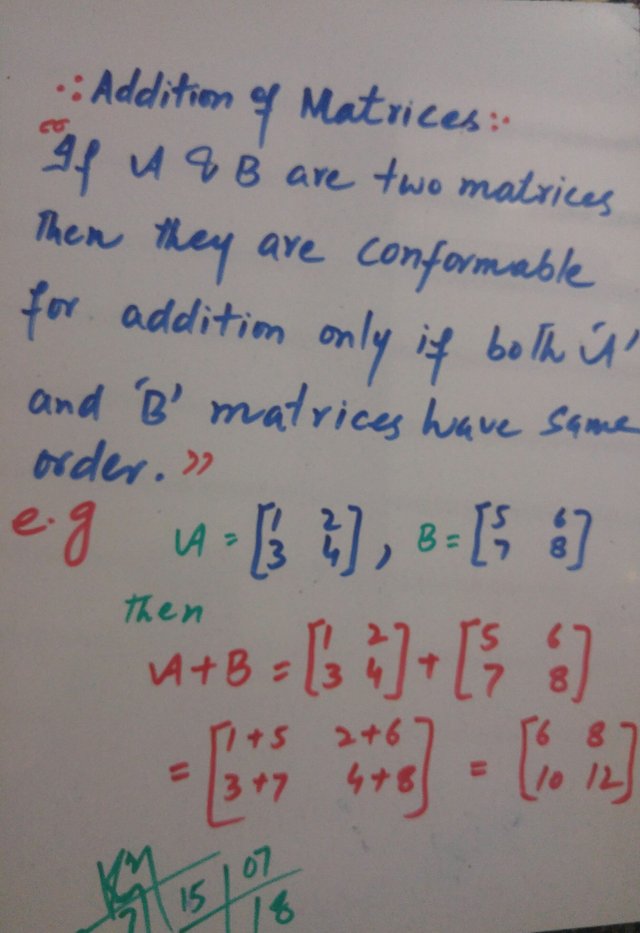 ∴ Addition of Matrices :·
“If A & B are two matrices
Then they are conformable
for addition only if both 'A'
and 'B' matrices have same
order.”
e.g A = [1 2; 3 4], B = [5 6; 7 8]
Then
A + B = [1 2; 3 4] + [5 6; 7 8]
= [1+5 2+6; 3+7 4+8] = [6 8; 10 12]
15 | 07
18